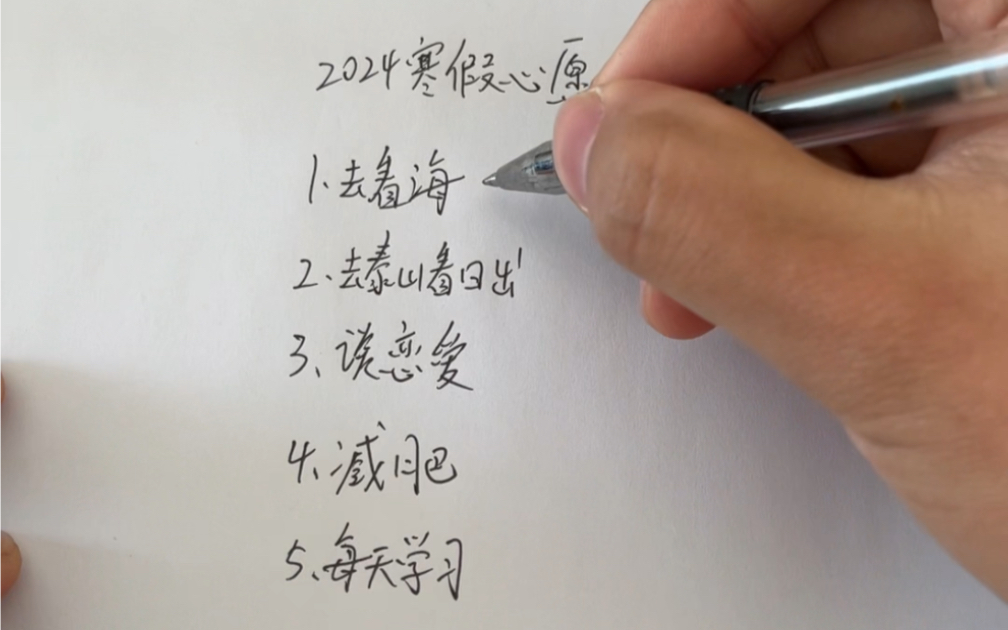 2024寒假心愿
1.去看海
2.去泰山看日出
3、谈恋爱
4、减肥
5.每天学习